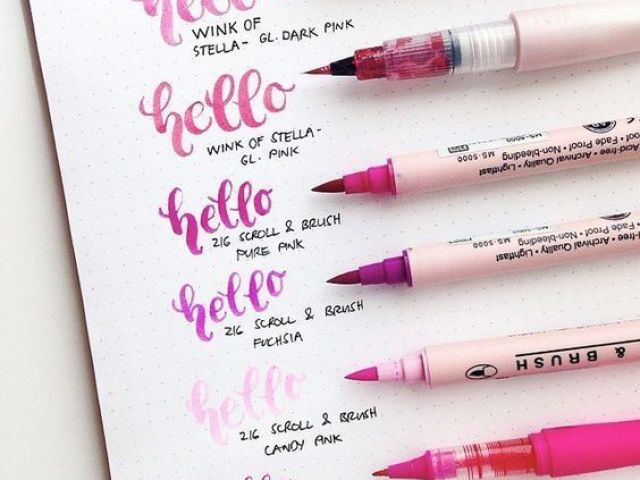 hello
WINK OF
STELLA- GL. DARK PINK
PUSH
hello
WINK OF STELLA-
GL. PINK
Acid-free • Archival Quality • Lightfast
Fade Proof • Non-bleeding MS-5000
hello
216 SCROLL & BRUSH
PURE PINK
Acid-free • Archival Quality • Lightfast
Fade Proof • Non-bleeding MS-5000
hello
216 SCROLL & BRUSH
FUCHSIA
& BRUSH
hello
216 SCROLL & BRUSH
CANDY PINK